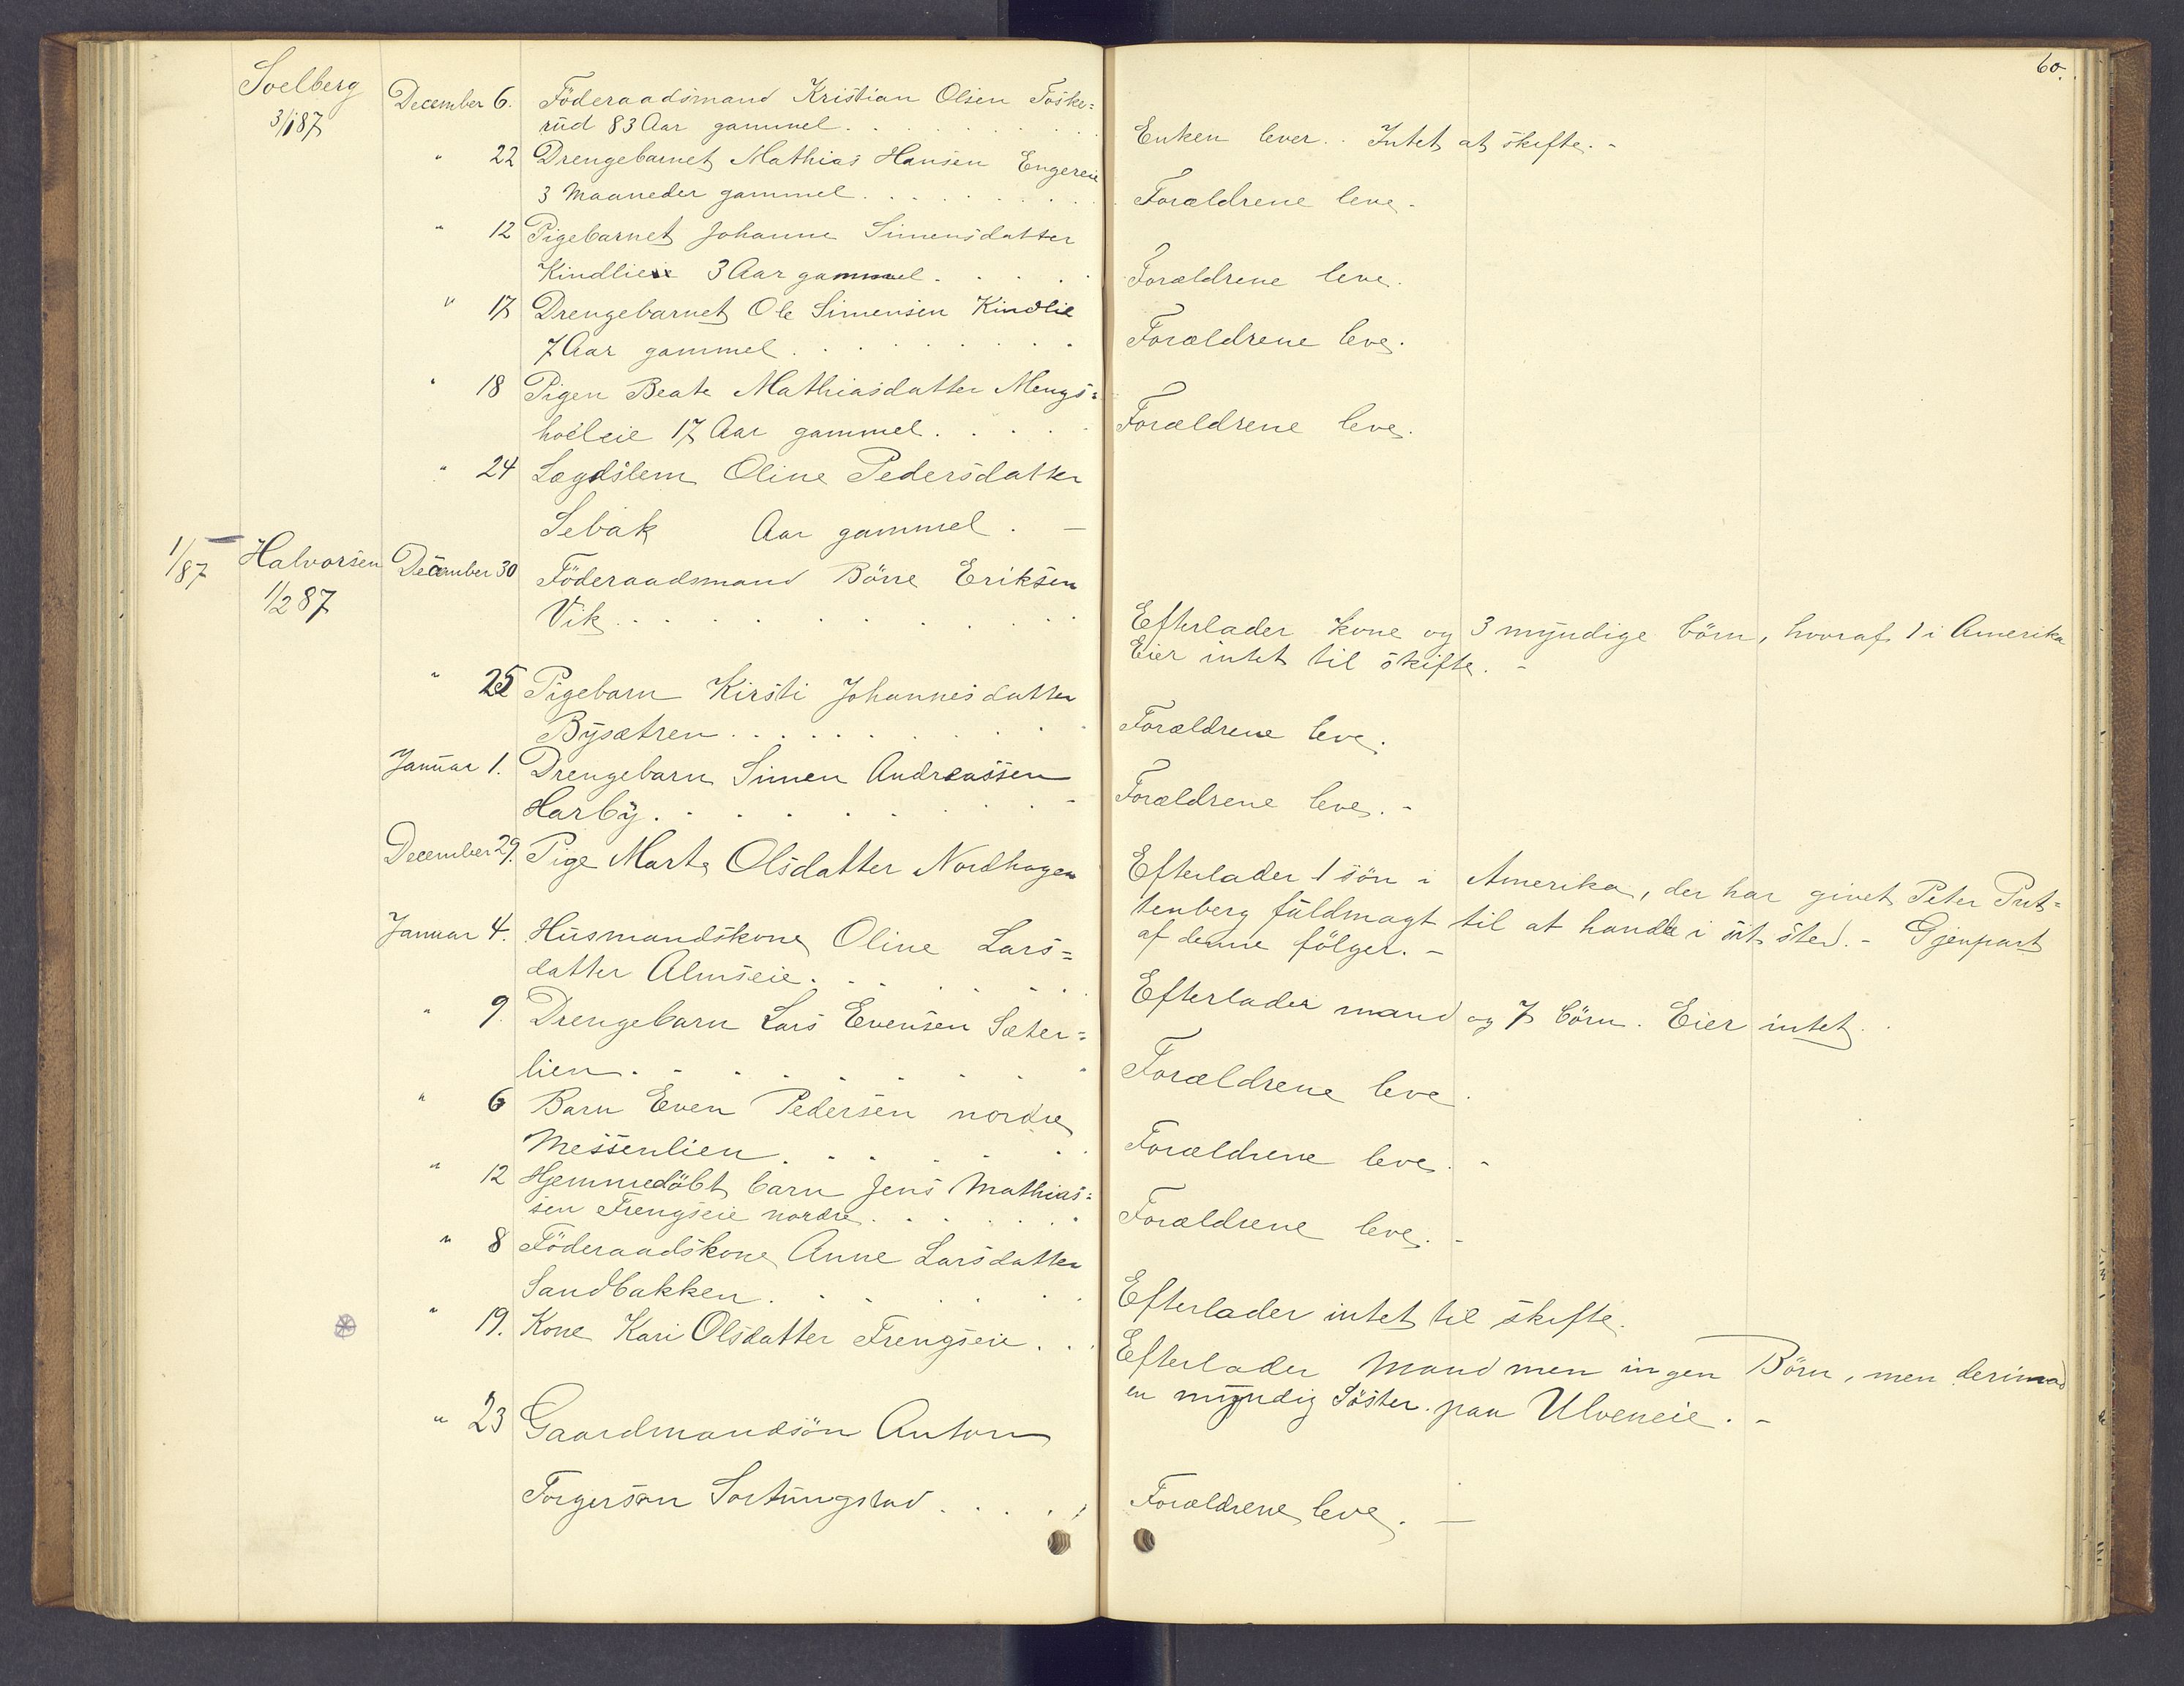 60.
Soelberg
3/1 87
December 6. Föderaadsmand Kristian Olsen Foske=
rud 83 Aar gammel.
Enken lever. Intet at skifte. -
" 22 Drengebarnet Mathias Hansen Engereie
3 Maaneder gammel.
Forældrene leve. -
" 12 Pigebarnet Johanne Simensdatter
Kindlie 3 Aar gammel.
Forældrene leve.
" 17 Drengebarnet Ole Simensen Kindlie
7 Aar gammel.
Forældrene leve.
" 18 Pigen Beate Mathiasdatter Mengs=
hoeleie 17 Aar gammel.
Forældrene leve.
" 24 Lægdslem Oline Pedersdatter
Sebak Aar gammel. -
1/87 Halvorsen
1/2 87
December 30 Föderaadsmand Börre Eriksen
Vik.
Efterlader kone og 3 myndige börn, hvoraf 1 i Amerika
Eier intet til skifte. -
" 25 Pigebarn Kirsti Johannesdatter
Bysætren.
Forældrene leve.
Januar 1. Drengebarn Simen Andreassen
Harby.
Forældrene leve. -
December 29. Pige Marte Olsdatter Nordhagen
Efterlader 1 sön i Amerika, der har givet Peter Prit=
tenberg fuldmagt til at handle i sit sted. - Gjenpart
af denne fölger. -
Januar 4. Husmandskone Oline Lars=
datter Almseie.
Efterlader mand og 7 börn. Eier intet.
" 9. Drengebarn Lars Evensen Sæter=
lien.
Forældrene leve.
" 6 Barn Even Pedersen nordre
Messenlien.
Forældrene leve. -
" 12 Hjemmedöbt barn Jens Mathias=
sen Frengseie nordre.
Forældrene leve. -
" 8 Föderaadskone Anne Larsdatter
Sandbakken.
Efterlader intet til skifte.
" 19. Kone Kari Olsdatter Frengseie.
Efterlader Mand men ingen Börn, men derimod
en myndig Söster paa Ulveneie. -
" 23 Gaardmandsön Anton
Torgersen Sortungstad.
Forældrene leve. -